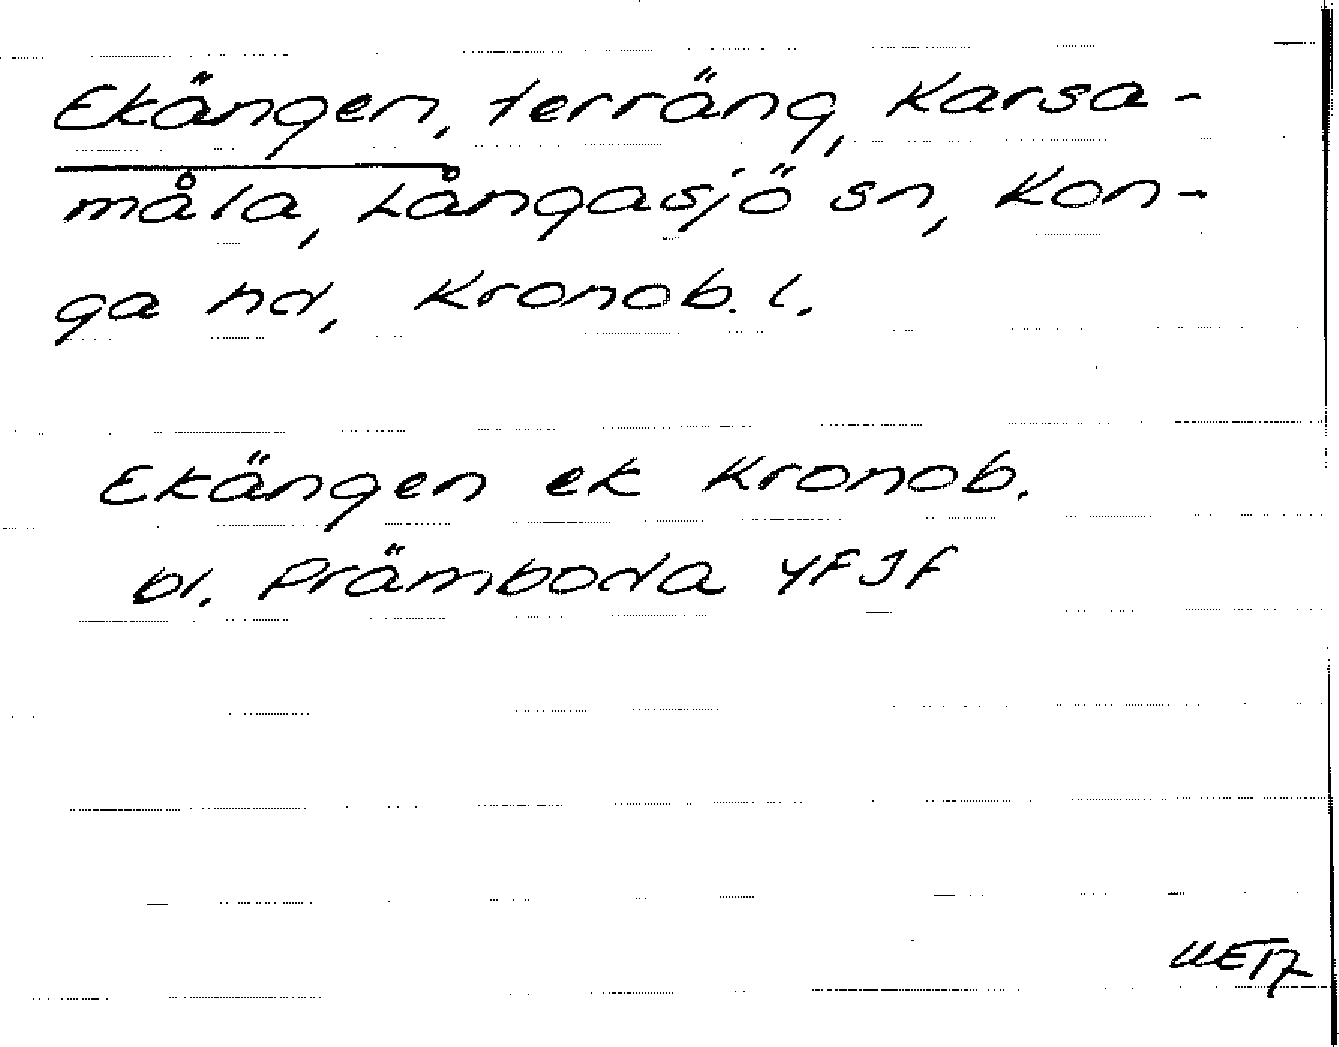 Ekängen, terräng, Karsa-
måla, Långasjö sn, Kon-
ga hd, Kronob. l.
Ekängen ek Kronob.
bl. Främboda YFIF